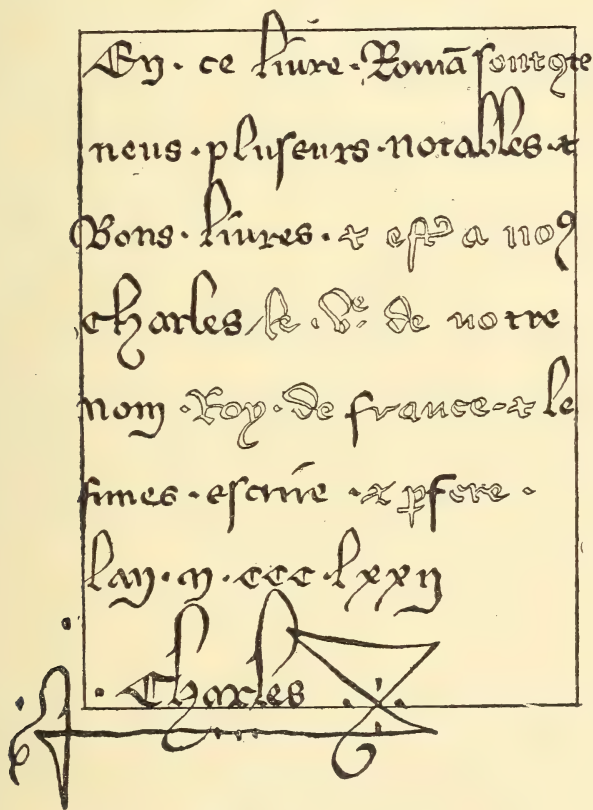 En · ce livre · Romā sont ꝯte
neus · pluseurs · notables · ⁊
Bons · livres · ⁊ est a noꝰ
Charles le · Ve · de notre
nom · Roy · de france · ⁊ le
fimes · escrire · ⁊ ꝑfere ·
lan · m · ccc · lxxii
· Charles